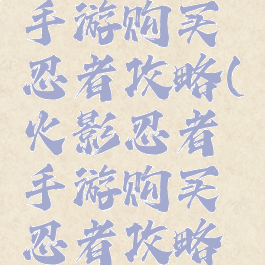 手游购买
忍者攻略(
火影忍者
手游购买
忍者攻略